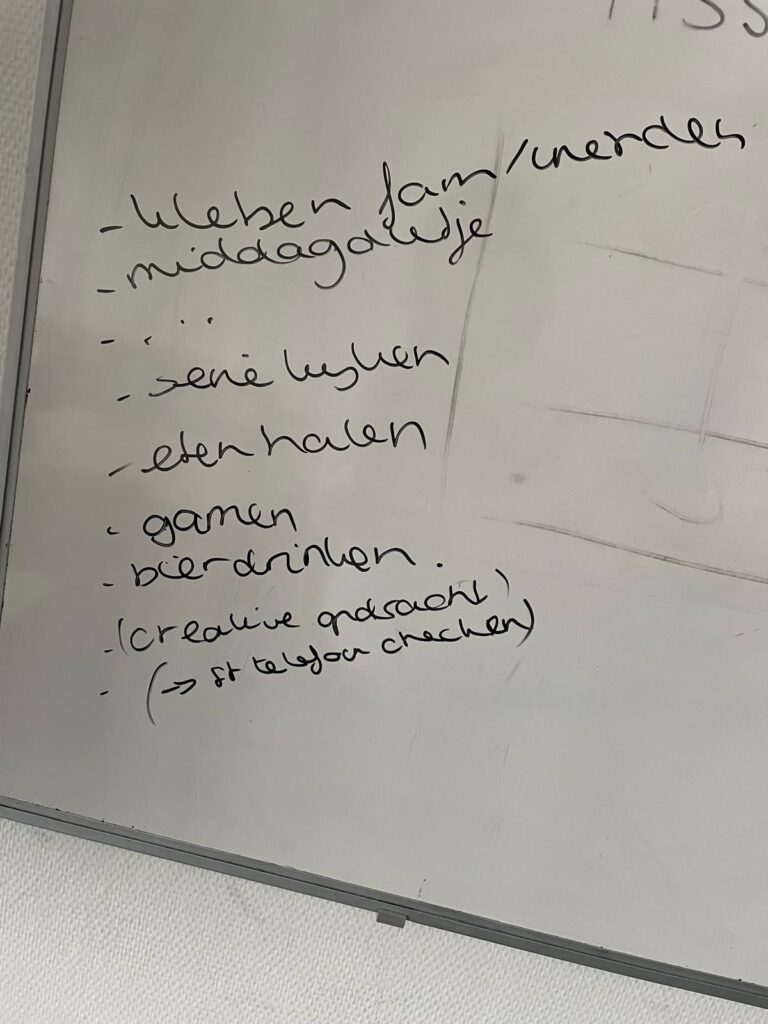 - kleben fam/vrienden
- middagdutje
- ...
- serie kijken
- eten halen
- gamen
- bier drinken.
- (creative opdracht)
- (→ st telefoon checken)